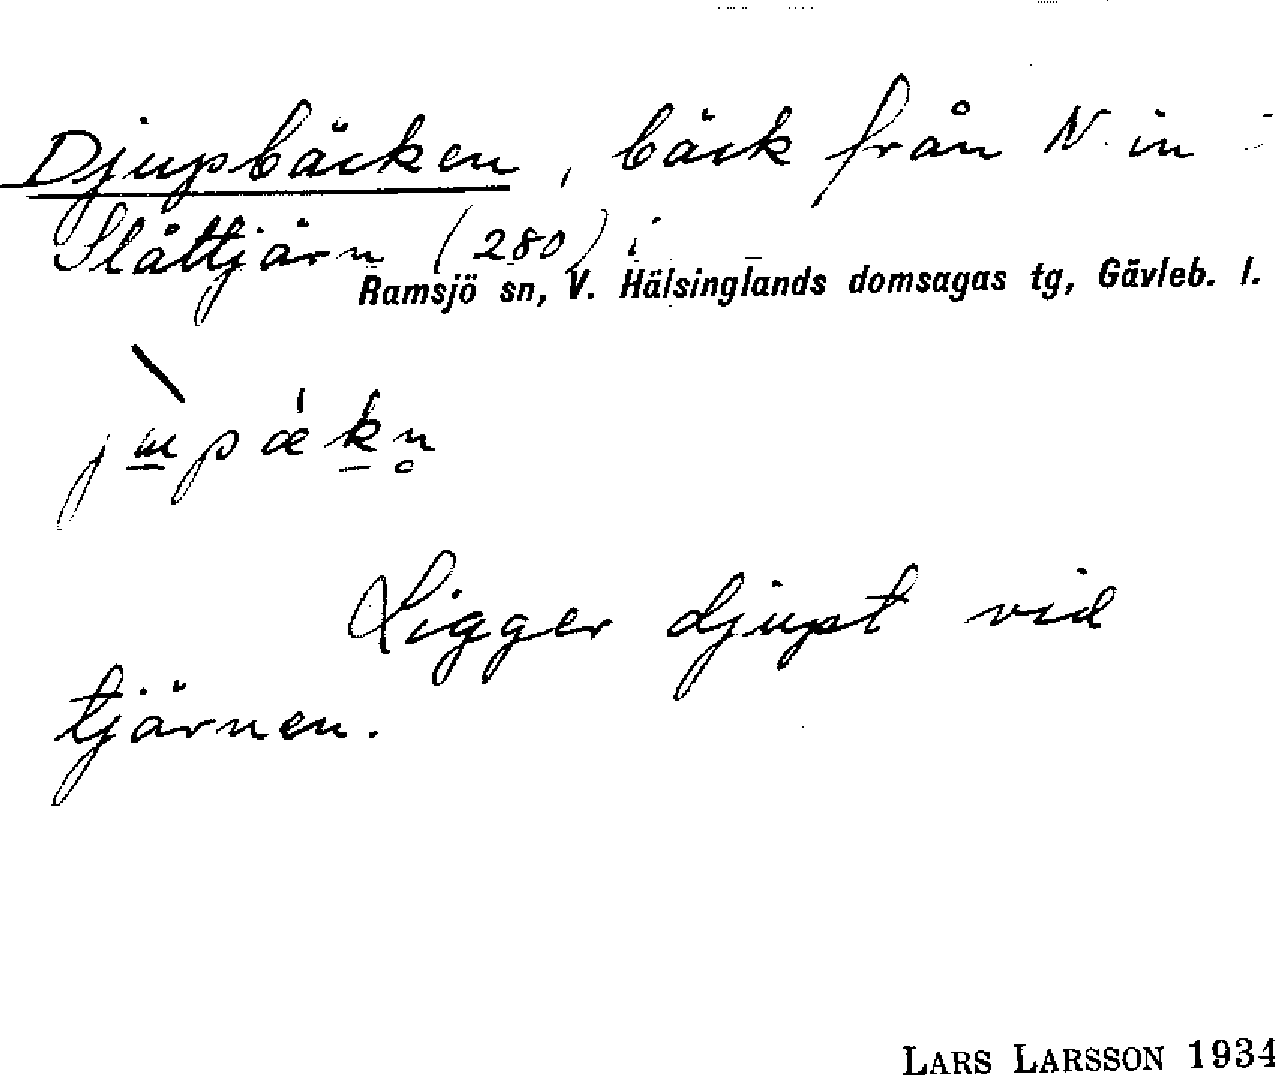 Djupbäcken, bäck från N. in i
Slåttjärn (280) i
Ramsjö sn, V. Hälsinglands domsagas tg, Gävleb. l.
Ligger djupt vid
tjärnen.
LARS LARSSON 1934